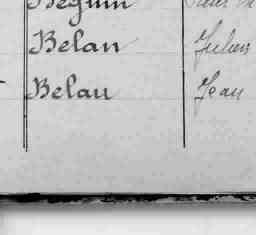 Beguin
Belan Julien
Belau Jean